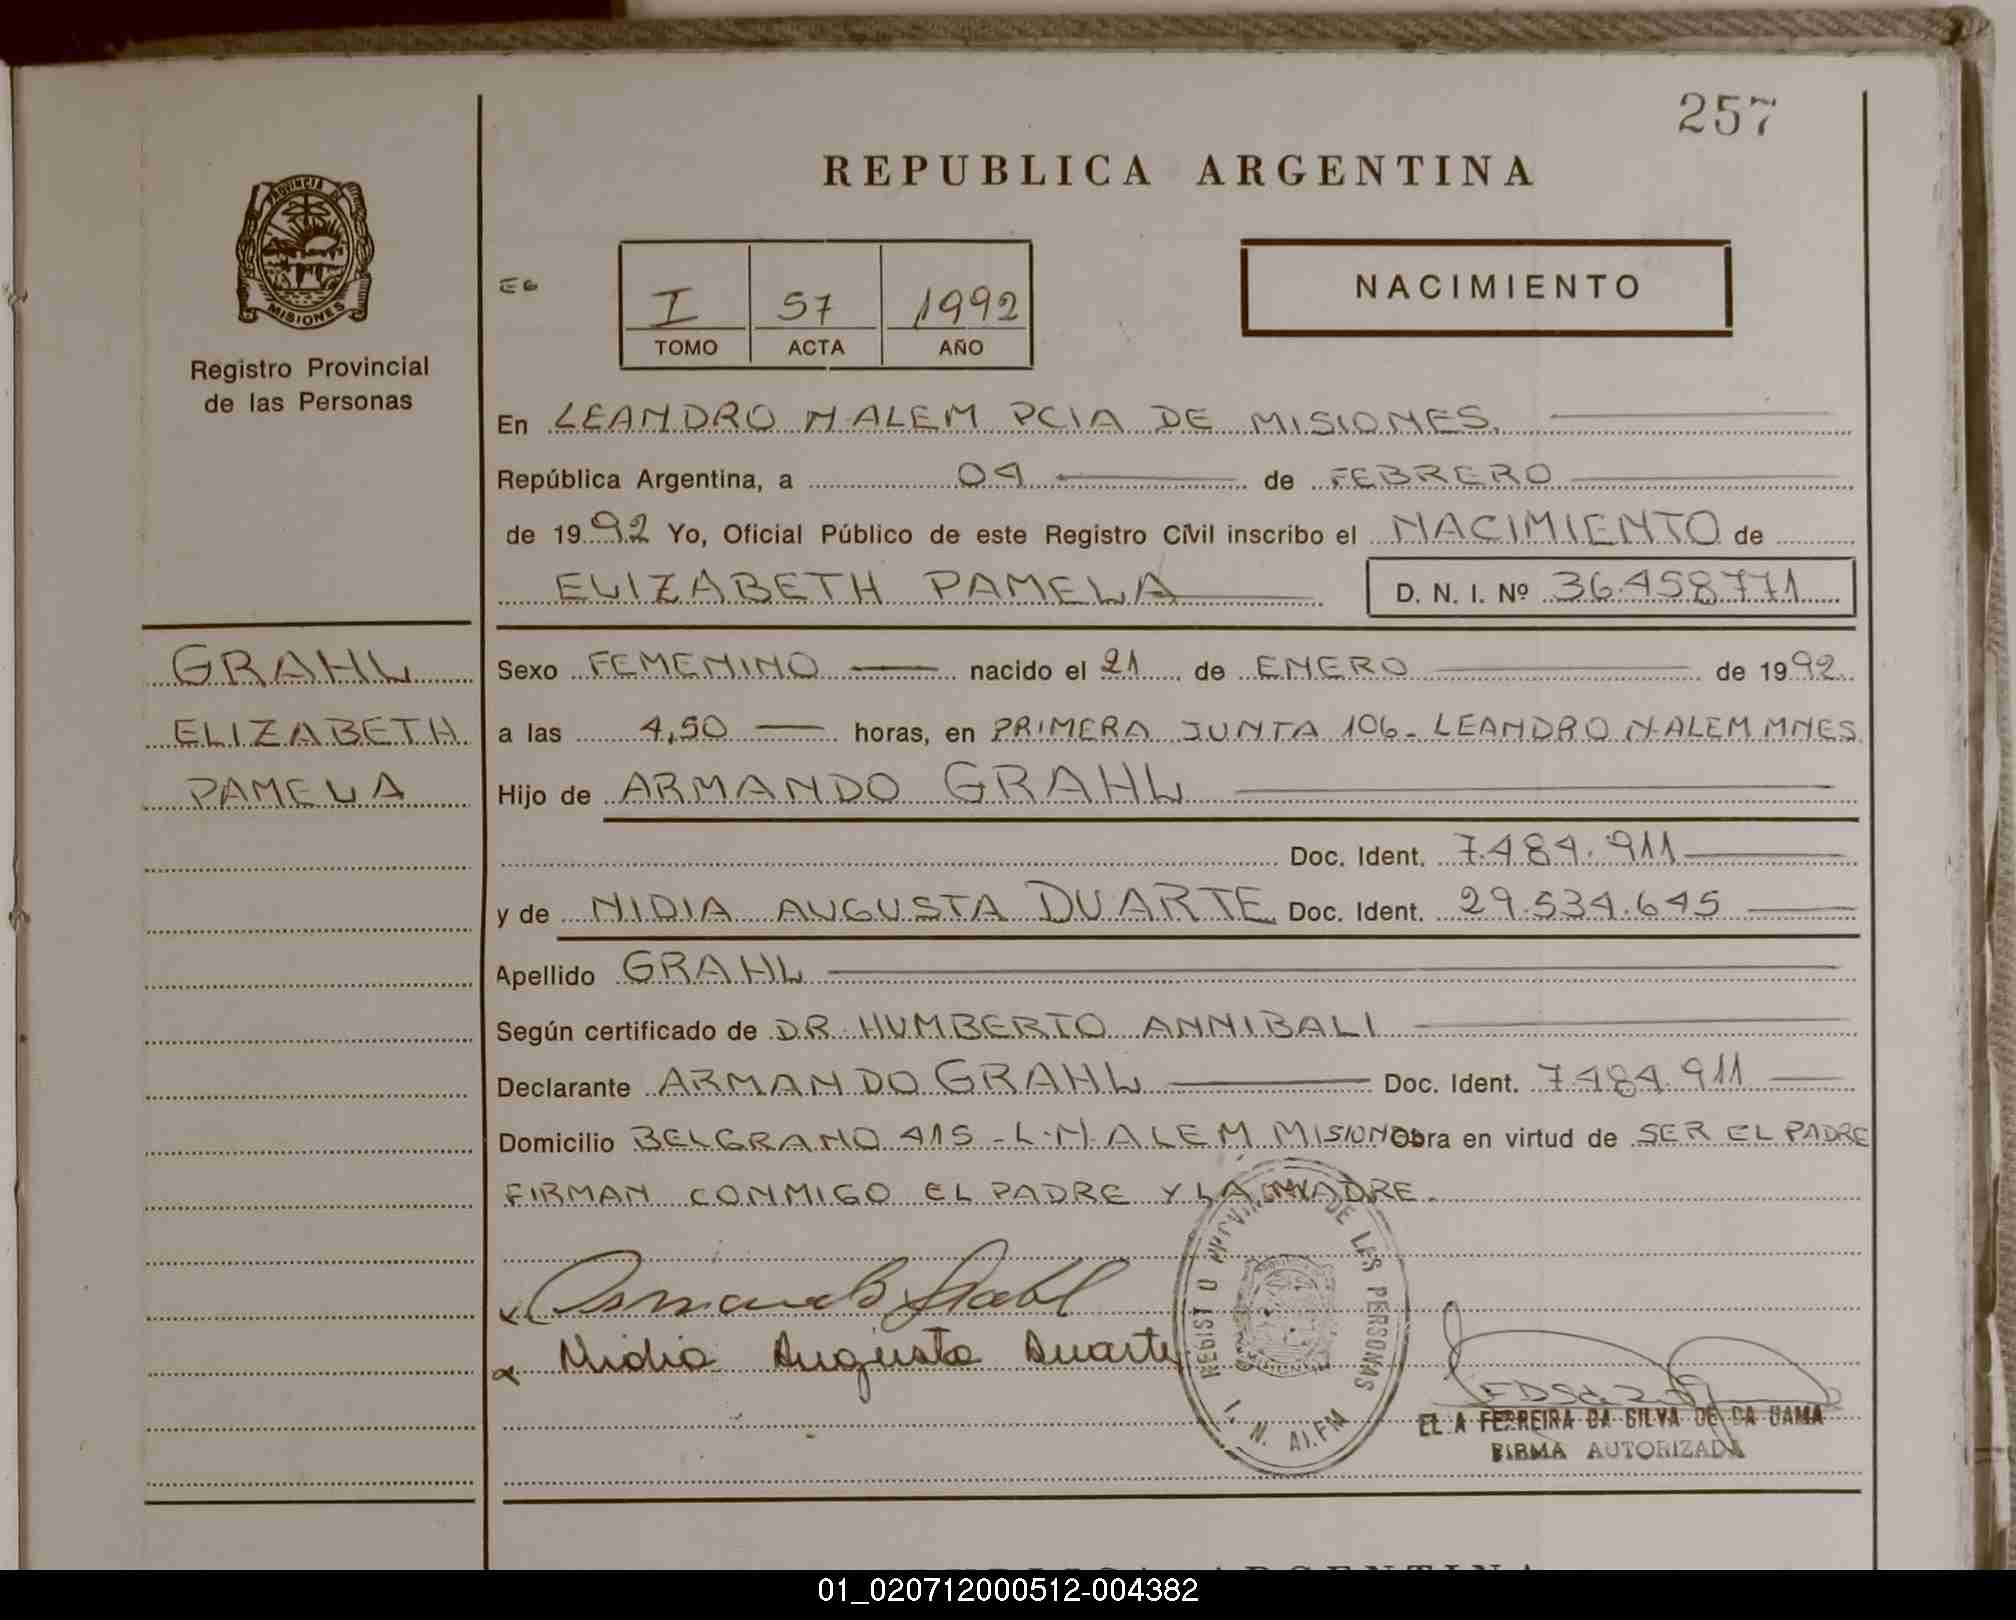 257
REPUBLICA ARGENTINA
PROVINCIA DE
MISIONES
Registro Provincial
de las Personas
I 57 1992
TOMO ACTA AÑO
NACIMIENTO
En LEANDRO N. ALEM PCIA DE MISIONES.
República Argentina, a 04 de FEBRERO
de 1992 Yo, Oficial Público de este Registro Civil inscribo el NACIMIENTO de
ELIZABETH PAMELA D. N. I. Nº 36.458771
GRAHL
ELIZABETH
PAMELA
Sexo FEMENINO nacido el 21 de ENERO de 1992
a las 4,50 horas, en PRIMERA JUNTA 106- LEANDRO N-ALEM MNES.
Hijo de ARMANDO GRAHL
Doc. Ident. 7.484.911
y de NIDIA AUGUSTA DUARTE Doc. Ident. 29.534.645
Apellido GRAHL
Según certificado de DR. HUMBERTO ANNIBALI
Declarante ARMANDO GRAHL Doc. Ident. 7.484.911
Domicilio BELGRANO 415 - L.N. ALEM MISION Obra en virtud de SER EL PADRE
FIRMAN CONMIGO EL PADRE Y LA MADRE.
Armando Grahl
Nidia Augusta Duarte
REGISTRO PROVINCIAL DE LAS PERSONAS
L. N. ALEM
EL A FERREIRA DA SILVA DE DA GAMA
FIRMA AUTORIZADA
01_020712000512-004382